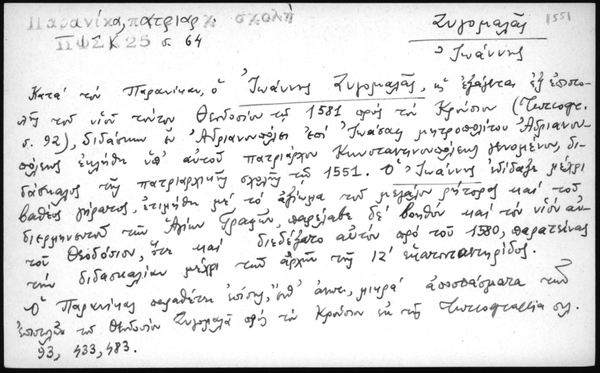 Παρανίκα, πατριαρχ. σχολή
ΠΦΣΚ 25 σ. 64
Ζυγομαλᾶς
Ἰωάννης
1551
Κατά τόν Παρανίκαν, ὁ Ἰωάννης Ζυγομαλᾶς, ὡς ἐξάγεται ἐξ ἐπιστο-
λῆς τοῦ υἱοῦ τούτου Θεοδοσίου τῷ 1581 πρός τόν Κρούσιον (Turcogr.
σ. 92), διδάσκων ἐν Ἀδριανουπόλει ἐπί Ἰωάσαφ μητροπολίτου Ἀδριανου-
πόλεως ἐκλήθη ὑπ' αὐτοῦ πατριάρχου Κωνσταντινουπόλεως γενομένου, δι-
δάσκαλος τῆς πατριαρχικῆς σχολῆς τῷ 1551. Ὁ Ἰωάννης ἐδίδαξε μέχρι
βαθέος γήρατος, ἐτιμήθη μέ τό ἀξίωμα τοῦ μεγάλου ρήτορος καί τοῦ
διερμηνευτοῦ τῶν Ἁγίων Γραφῶν, παρέλαβε δέ βοηθόν καί τόν υἱόν αὐ-
τοῦ Θεοδόσιον, ὅστις καί διεδέξατο αὐτόν πρό τοῦ 1580, παρατείνας
τήν διδασκαλίαν μέχρι τῶν ἀρχῶν τῆς ΙΖ' ἑκατονταετηρίδος.
Ὁ Παρανίκας παραθέτει ἐπίσης, μικρά ἀποσπάσματα τῶν
ἐπιστολῶν τοῦ Θεοδοσίου Ζυγομαλᾶ πρός τόν Κρούσιον ἐκ τῆς Turcograecia σελ.
93, 433, 483.